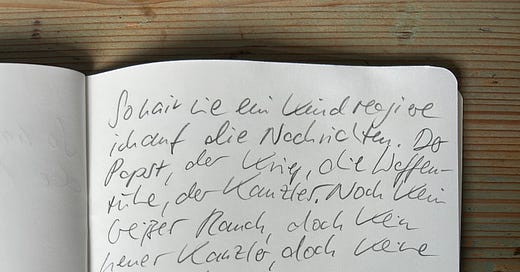 wie ein Kind reagiere
ich auf die Nachrichten. Der
Papst, der Krieg, die Waffen-
ruhe, der Kanzler. Noch kein
weißer Rauch, doch kein
neuer Kanzler, doch keine